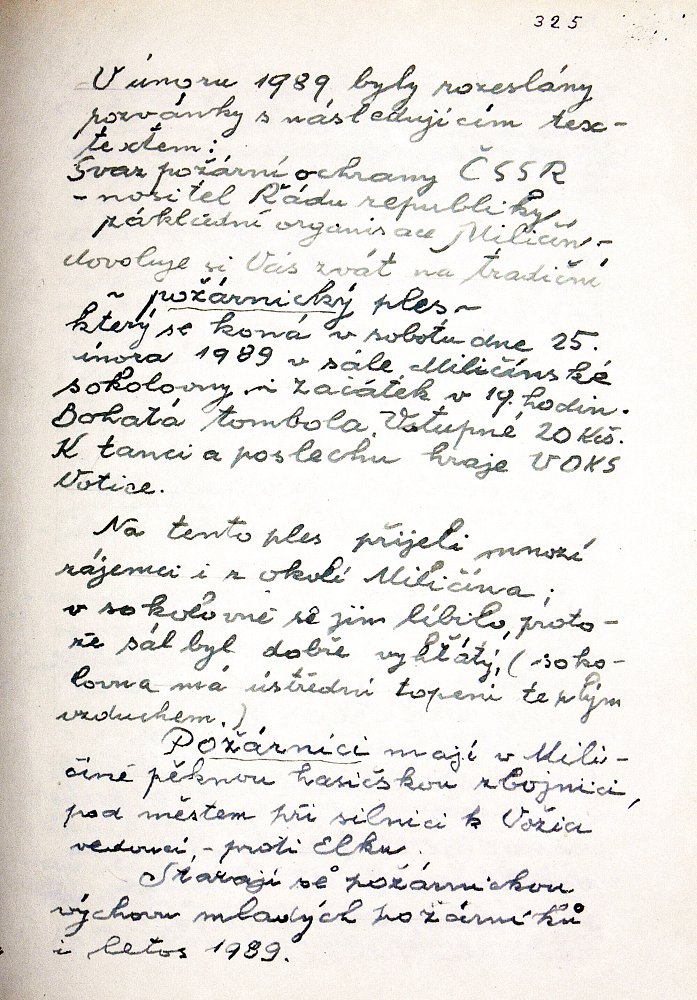 325
V únoru 1989 byly rozeslány
pozvánky s následujícím tex-
textem:
Svaz požární ochrany ČSSR
- nositel Řádu republiky
základní organisace Miličín -
dovoluje si Vás zvát na tradiční
~ požárnický ples ~
který se koná v sobotu dne 25.
února 1989 v sále Miličínské
sokolovny. Začátek v 19. hodin.
Bohatá tombola. Vstupné 20 Kčs.
K tanci a poslechu hraje VOKS
Votice.
Na tento ples přijeli mnozí
zájemci i z okolí Miličína;
v sokolovně se jim líbilo, proto-
že sál byl dobře vyhřátý, (soko-
lovna má ústřední topení teplým
vzduchem.)
Požárníci mají v Mili-
číně pěknou hasičskou zbojnici,
pod městem při silnici k Vožici
vedoucí, - proti Elku.
Starají se požárnickou
výchovu mladých požárníků
i letos 1989.